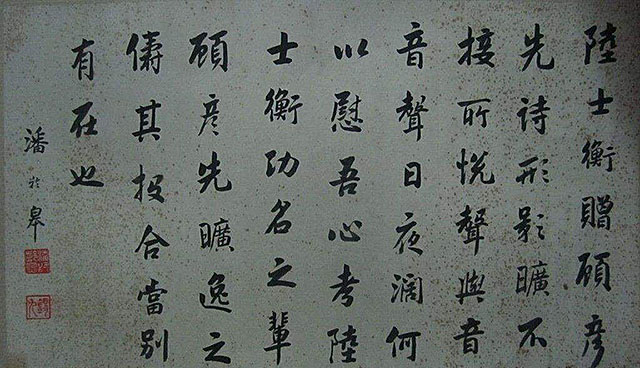 陸士衡贈顧彦
先詩形影曠不
接所悅聲與音
音聲日夜濶何
以慰吾心考陸
士衡功名之輩
顧彦先曠逸之
儔其投合當別
有在也
潘齡皋